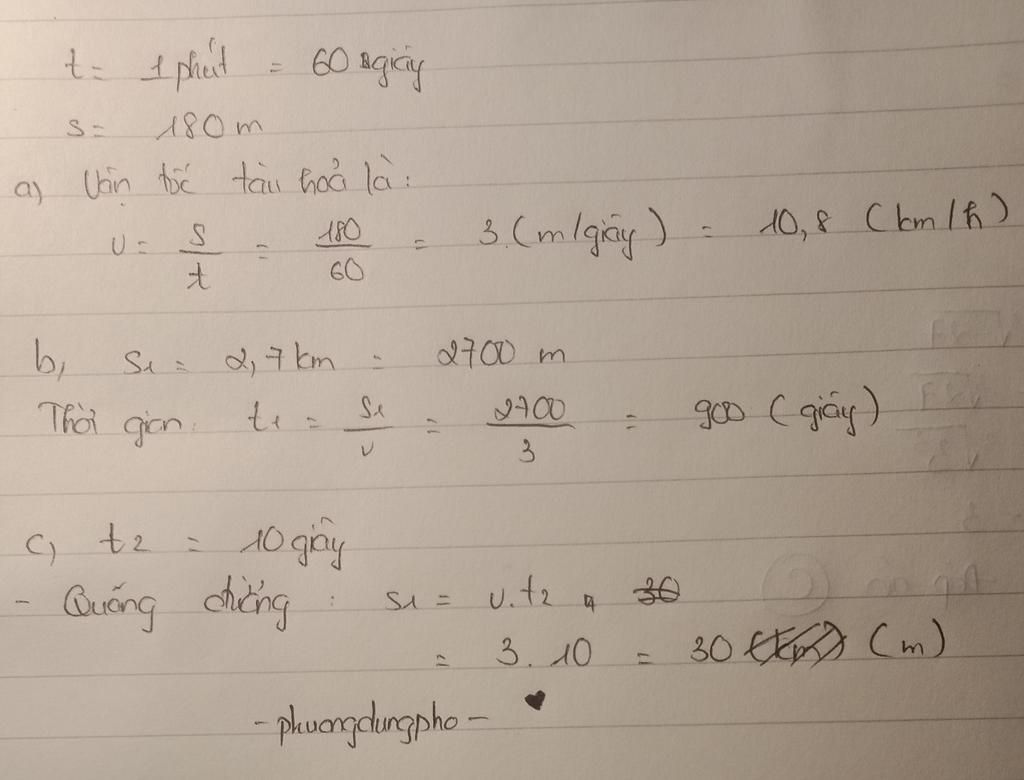 t = 1 phút = 60 giây
s = 180 m
a) Vận tốc tàu hoả là:
v = s/t = 180/60 = 3 (m/giây) = 10,8 (km/h)
b, s1 = 2,7 km = 2700 m
Thời gian: t1 = s1/v = 2700/3 = 900 (giây)
c, t2 = 10 giây
- Quãng đường: s1 = v.t2 = 30
= 3. 10 = 30 (km) (m)
-phuongdungpho- ♥